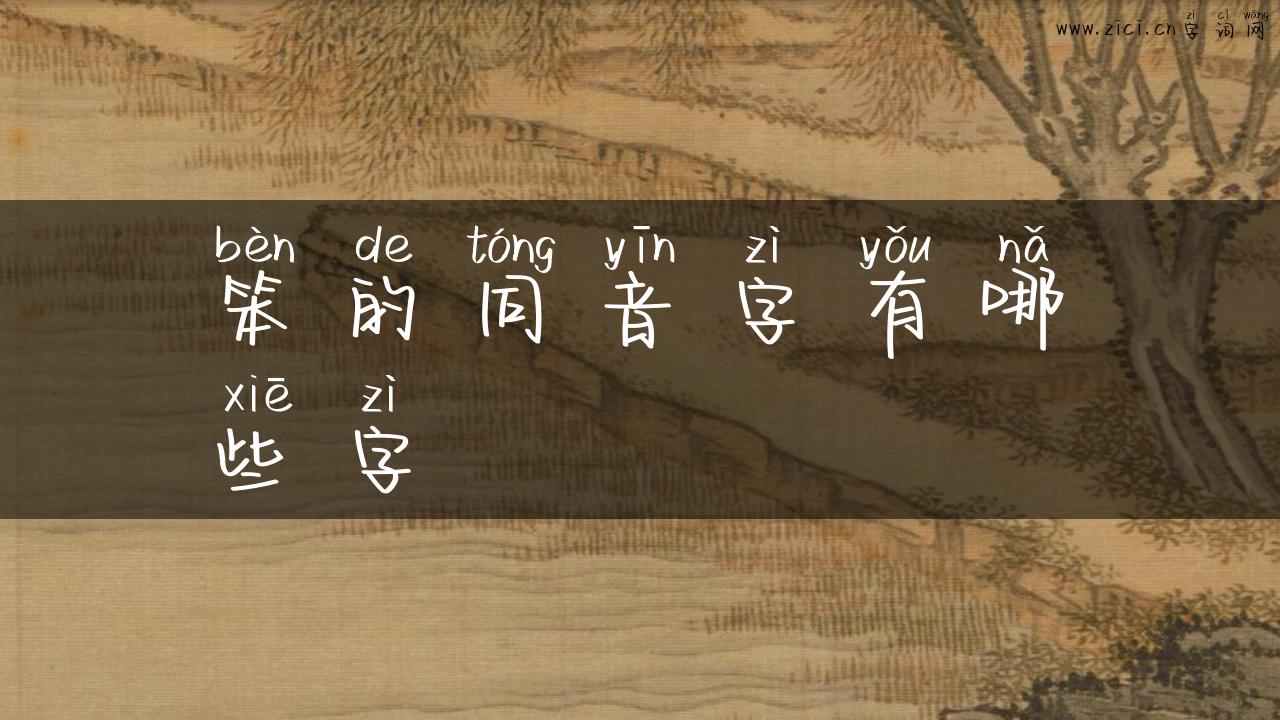 zì cí wǎng
www.zici.cn 字 词 网
bèn de tóng yīn zì yǒu nǎ
笨 的 同 音 字 有 哪
xiē zì
些 字